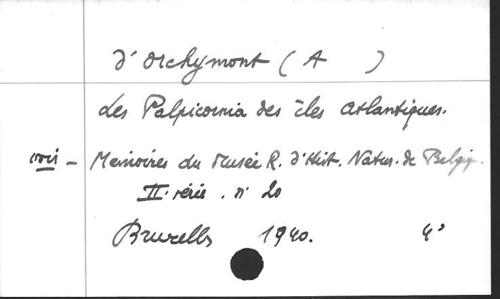 d'Orchymont ( A )
Les Palpicornia des îles Atlantiques.
voir - Memoires du Musée R. d'Hist. Natur. de Belgiq.
II. série . n° 20
Bruxelles 1940. 4°